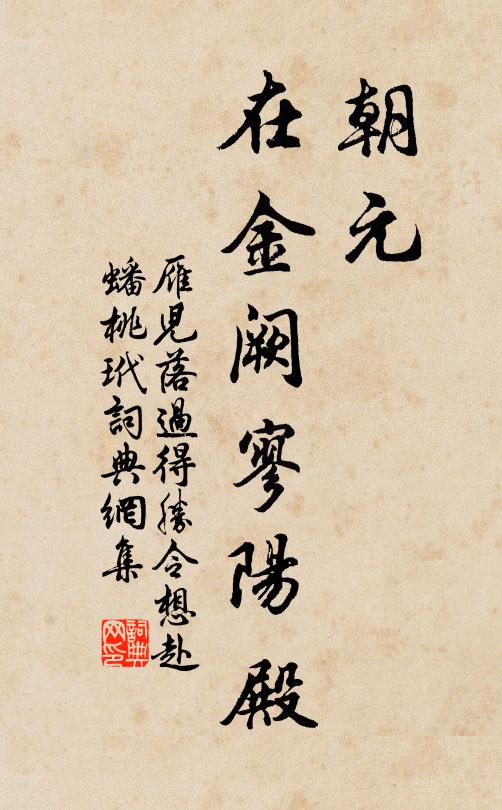 朝元
在金阙寥陽殿
雁兒落過得勝令想赴
蟠桃玳詞典網集
詞典
网印